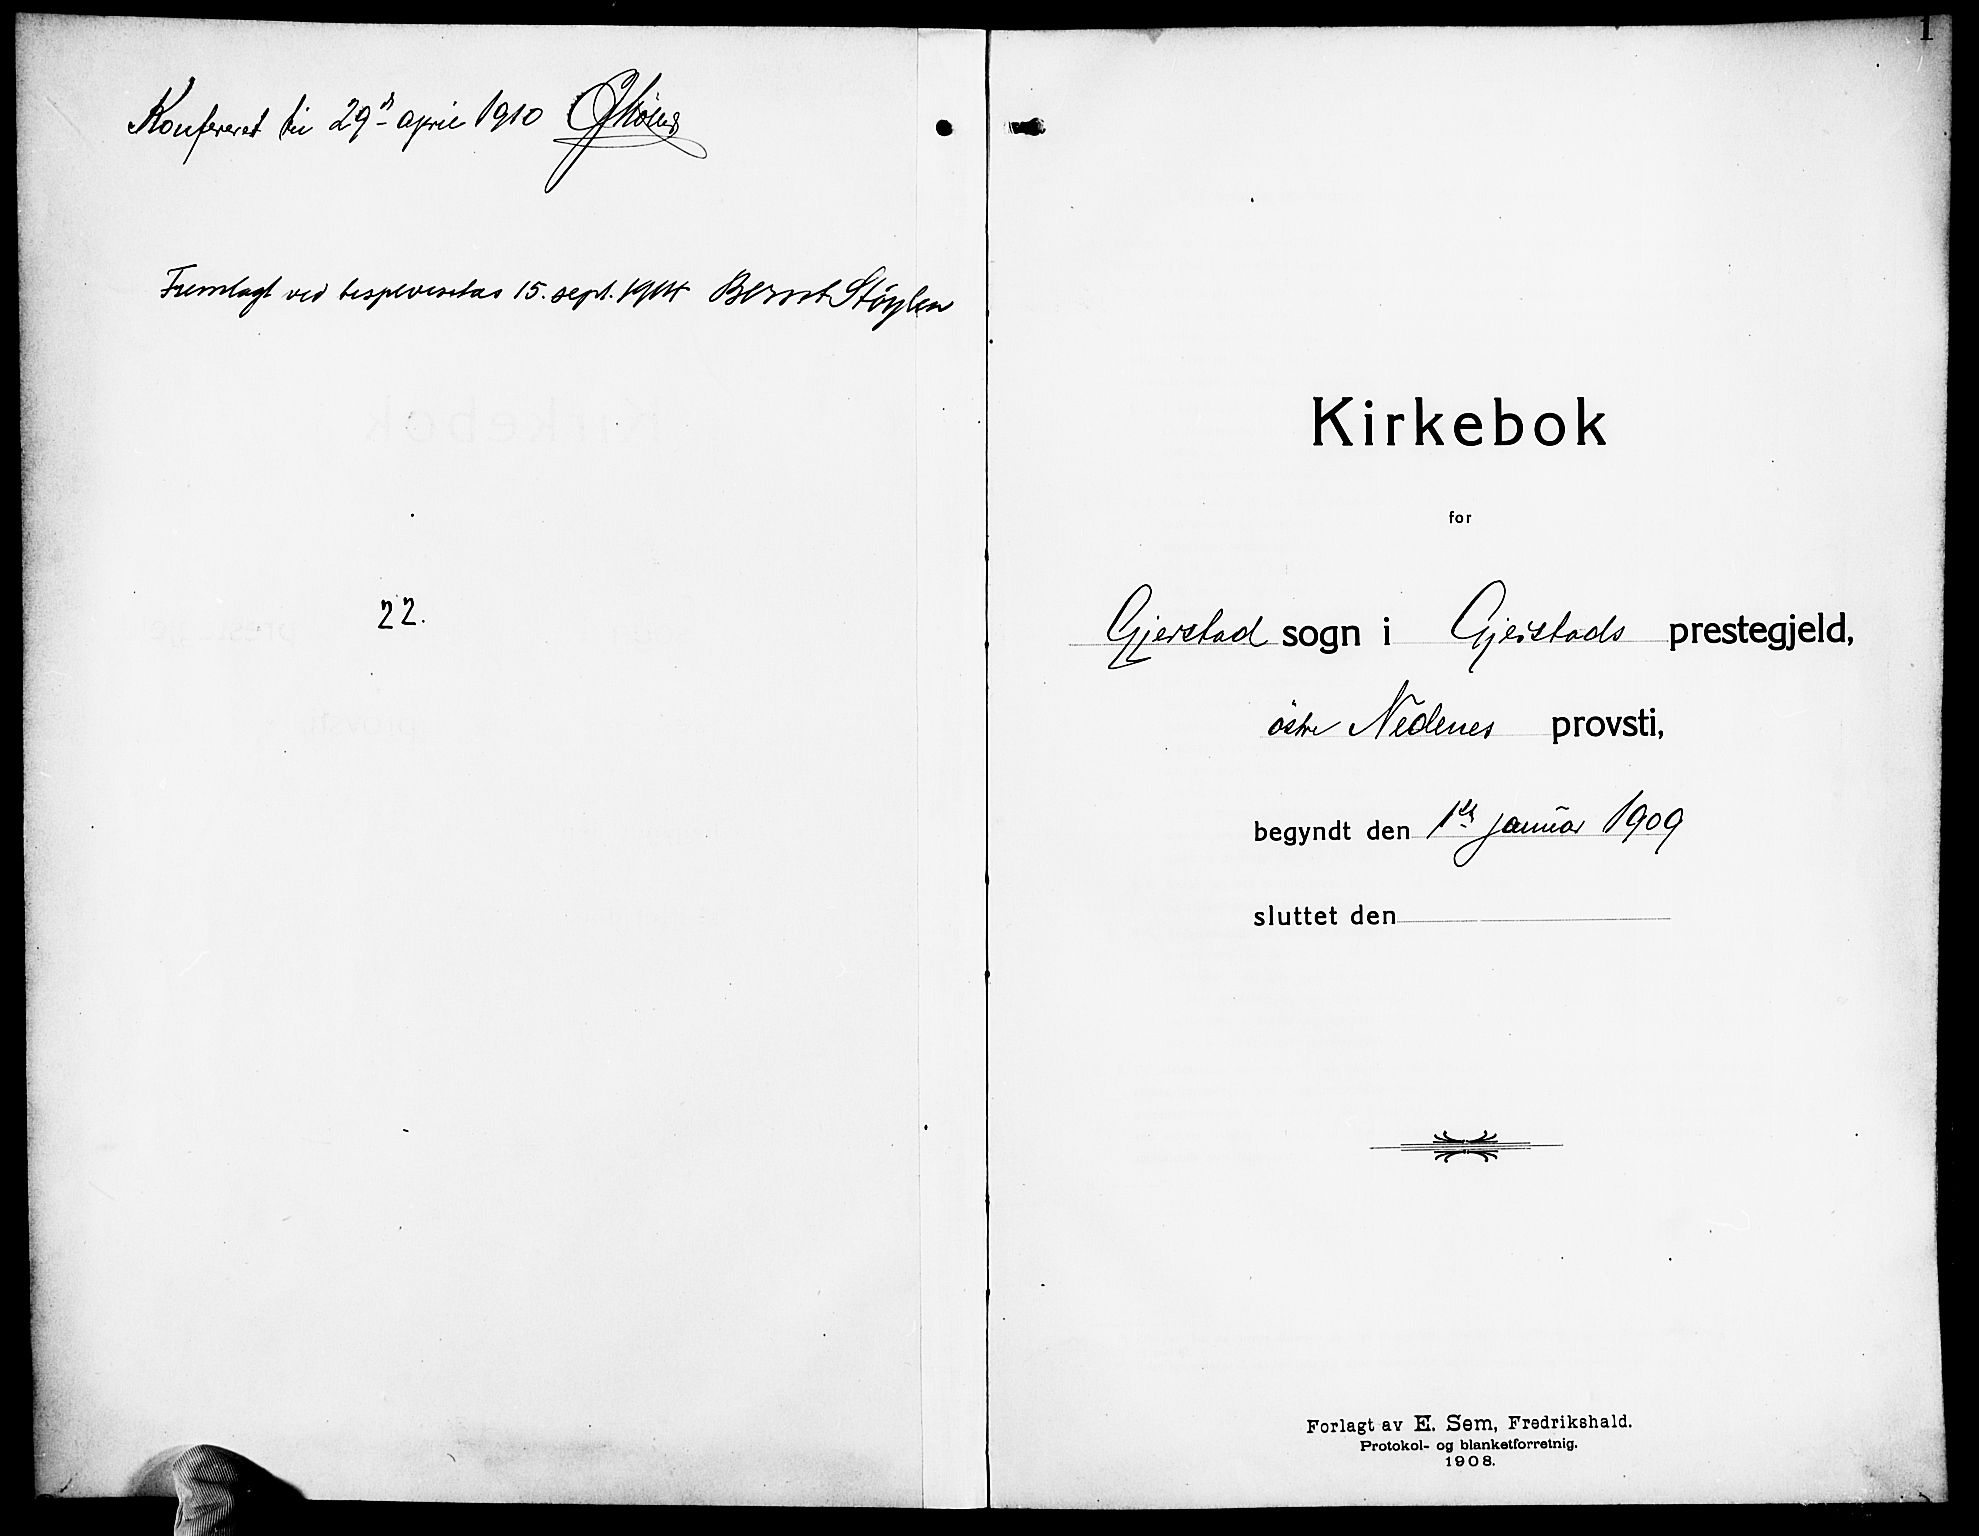 Konfereret til 29de april 1910
Fremlagt ved bispevisitas 15. sept. 1914 Bernt Støylen
22.
1
Kirkebok
for
Gjerstad sogn i Gjerstads prestegjeld,
östre Nedenes provsti,
begyndt den 1ste januar 1909
sluttet den
Forlagt av E. Sem, Fredrikshald.
Protokol- og blanketforretnig.
1908.